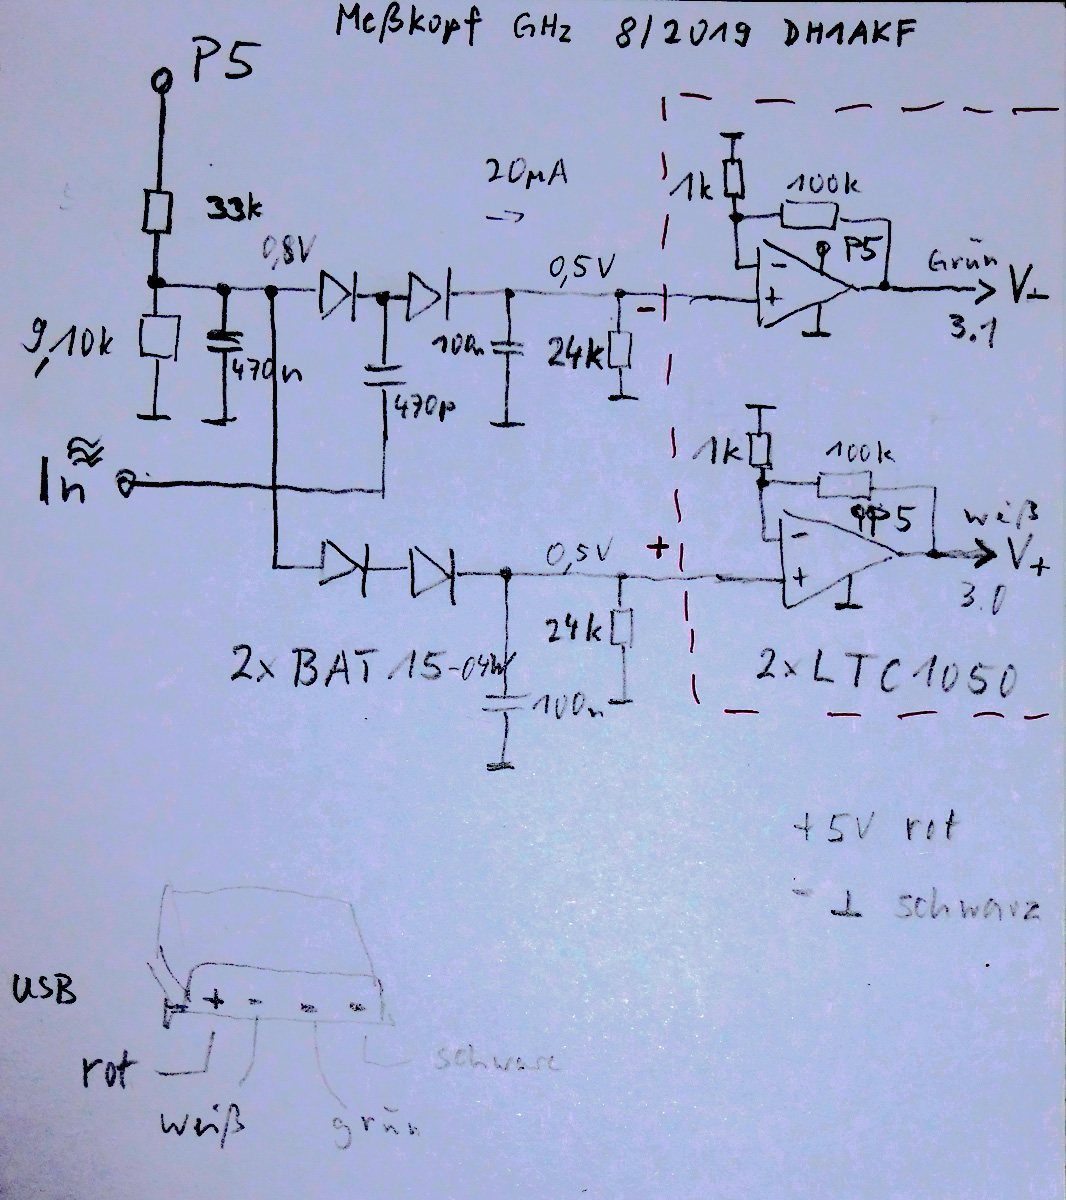 Meßkopf GHz 8/2019 DH1AKF
P5
33k
20µA
→
1k
100k
0,8V
0,5V
P5
Grün
V-
3.1
-
-
+
9,10k
470n
100n
24k
470p
In ≈
1k
100k
P5
weiß
V+
3.0
0,5V
+
-
+
24k
2x BAT 15-04W
100n
2x LTC1050
+5V rot
- ⊥ schwarz
USB
+ - - -
rot
weiß
grün
schwarz